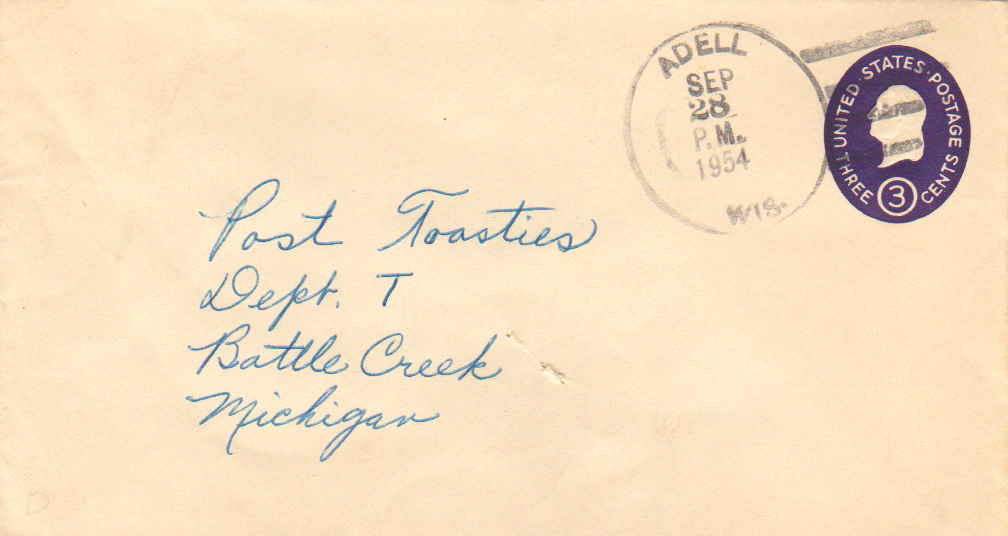 ADELL
SEP
28
P.M.
1954
WIS.
UNITED STATES POSTAGE
THREE CENTS
3
Post Toasties
Dept. T
Battle Creek
Michigan